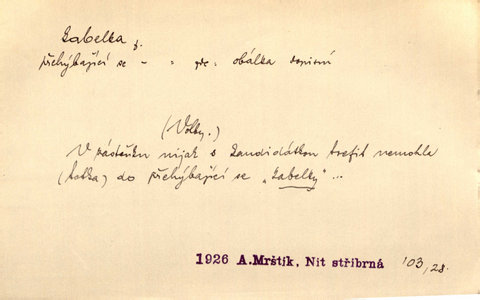 Kabelka f.
přehýbající se - " obálka dopisní
(Volby.)
V nijak s kandidátkou trefit nemohla
(babka) do přehýbající se „kabelky" ...
1926 A. Mrštík, Nit stříbrná 103, 28.